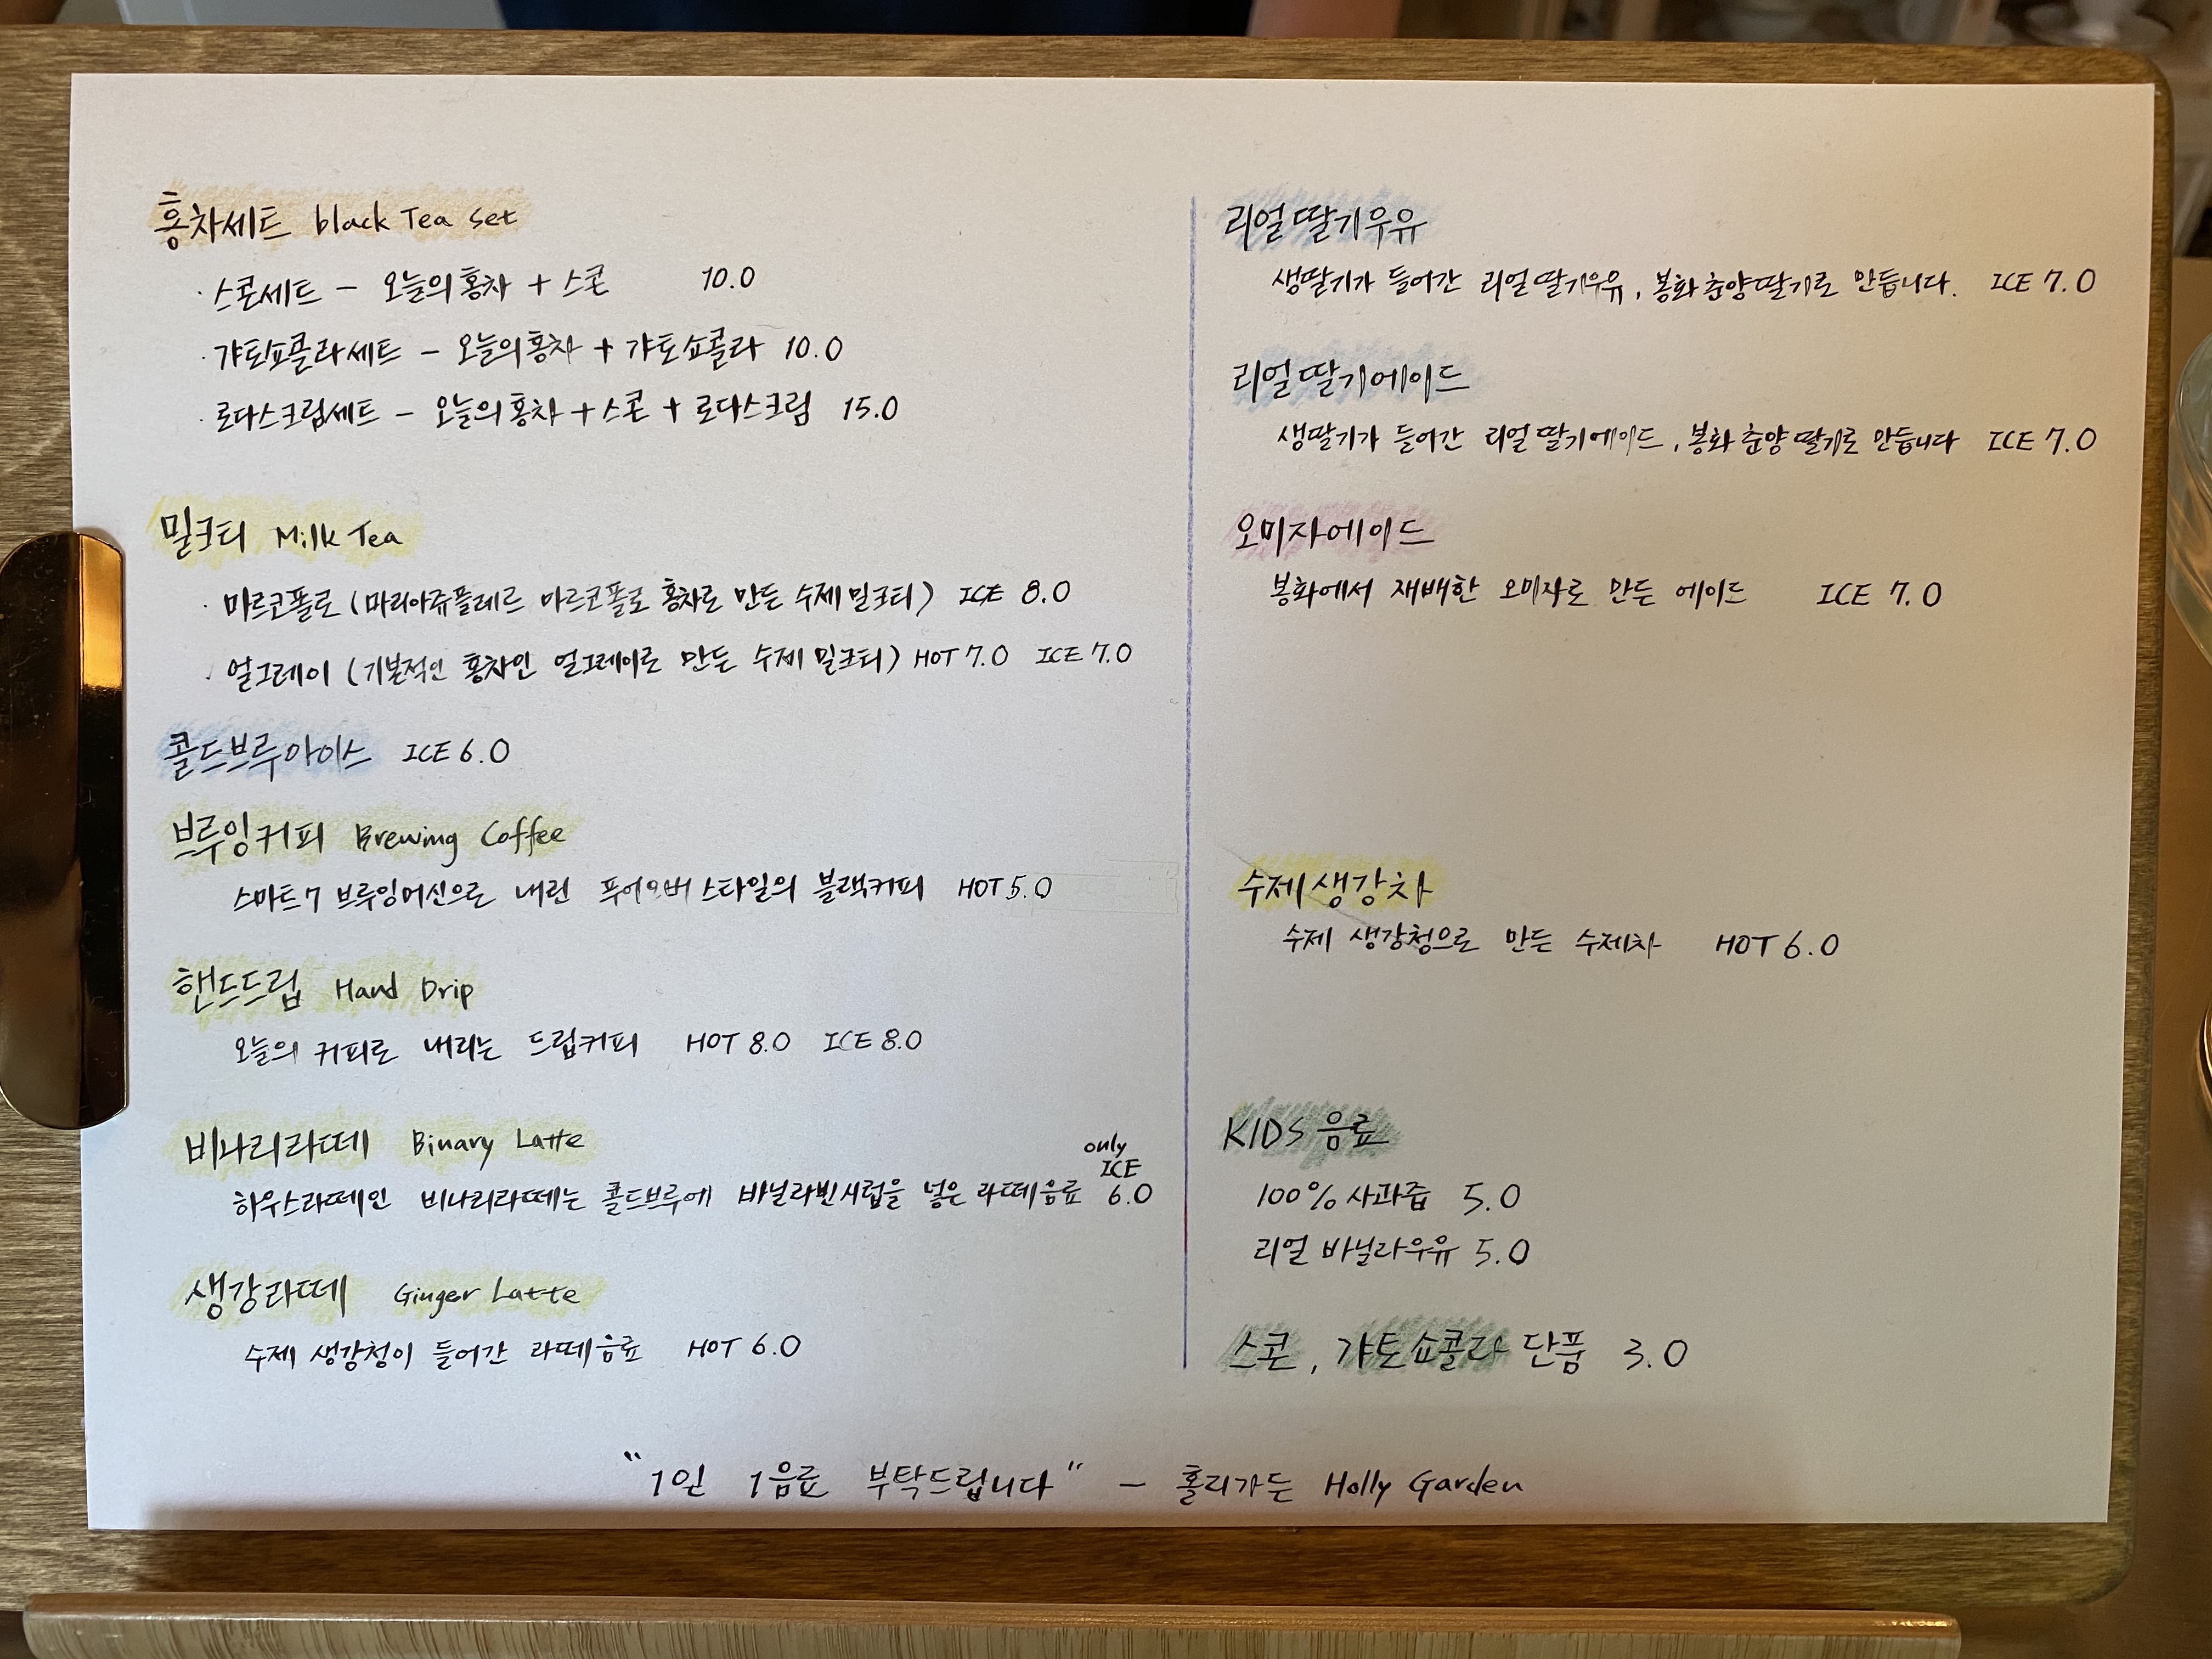 홍차세트 black Tea set
· 스콘세트 - 오늘의홍차 + 스콘 10.0
· 갸토쇼콜라세트 - 오늘의홍차 + 갸토쇼콜라 10.0
· 로다스크림세트 - 오늘의홍차 + 스콘 + 로다스크림 15.0
밀크티 Milk Tea
· 마르코폴로 (마리아쥬플레르 마르코폴로 홍차로 만든 수제 밀크티) ICE 8.0
· 얼그레이 (기본적인 홍차인 얼그레이로 만든 수제 밀크티) HOT 7.0 ICE 7.0
콜드브루아이스 ICE 6.0
브루잉커피 Brewing Coffee
스마트7 브루잉머신으로 내린 푸어오버 스타일의 블랙커피 HOT 5.0
핸드드립 Hand Drip
오늘의 커피로 내리는 드립커피 HOT 8.0 ICE 8.0
비나리라떼 Binary Latte
only ICE
하우스라떼인 비나리라떼는 콜드브루에 바닐라빈시럽을 넣은 라떼음료 6.0
생강라떼 Ginger Latte
수제 생강청이 들어간 라떼음료 HOT 6.0
리얼딸기우유
생딸기가 들어간 리얼딸기우유, 봉화춘양딸기로 만듭니다. ICE 7.0
리얼딸기에이드
생딸기가 들어간 리얼딸기에이드, 봉화춘양딸기로 만듭니다 ICE 7.0
오미자에이드
봉화에서 재배한 오미자로 만든 에이드 ICE 7.0
수제생강차
수제 생강청으로 만든 수제차 HOT 6.0
KIDS 음료
100% 사과즙 5.0
리얼 바닐라우유 5.0
스콘, 갸토쇼콜라 단품 3.0
"1인 1음료 부탁드립니다" - 홀리가든 Holly Garden